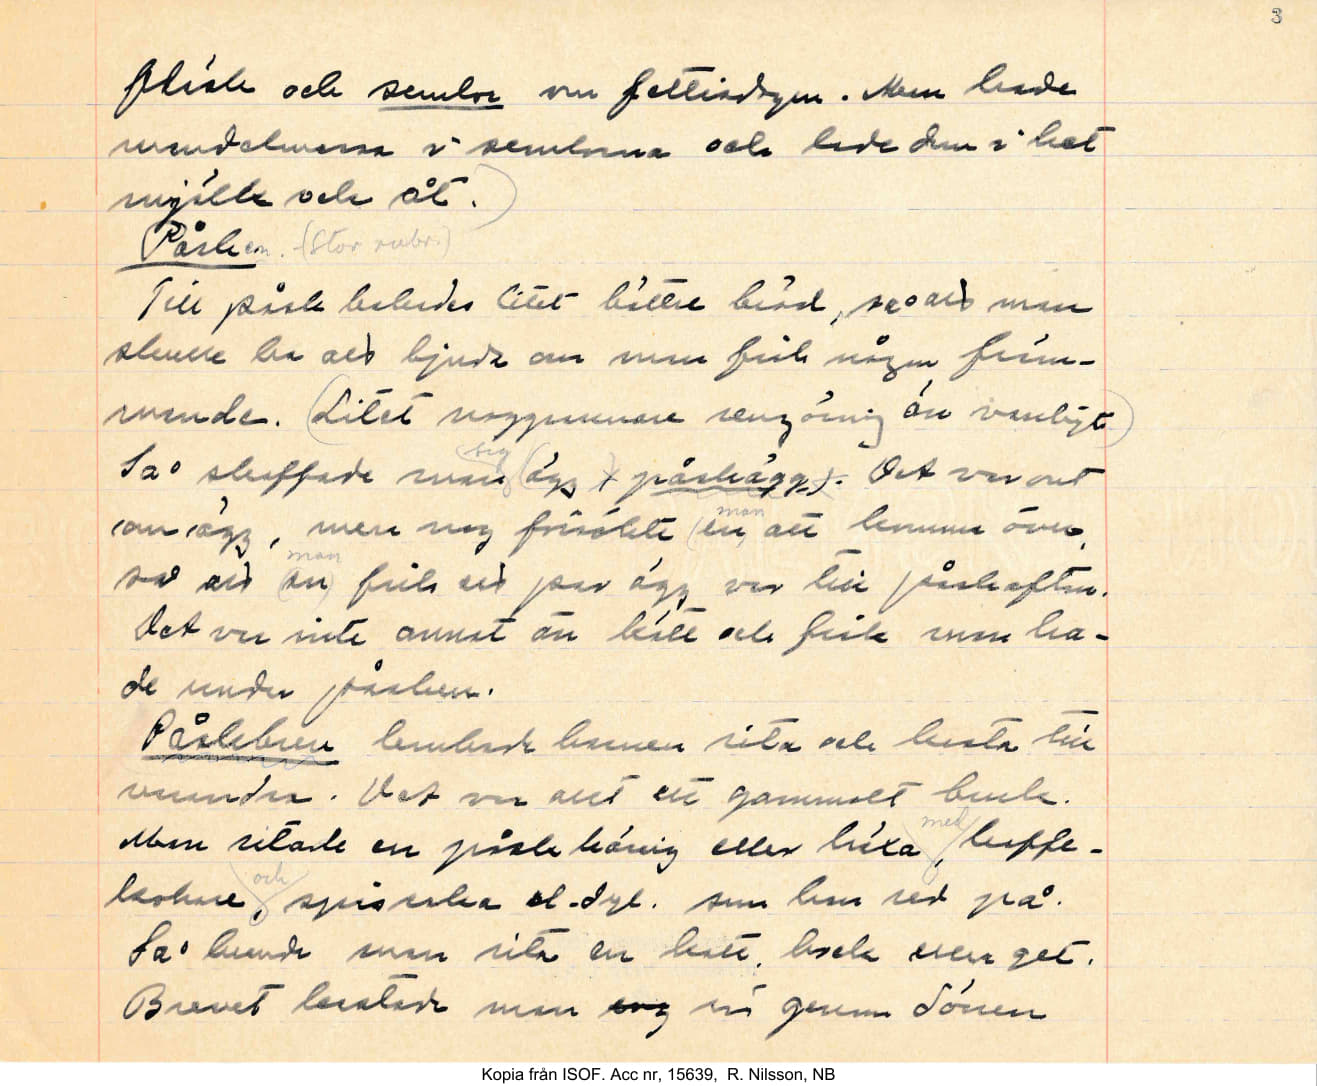 3
fläsk och semlor var fettisdagen. Man hade
mandelmassa i semlorna och lade dem i het
mjölk och åt.)
(Påsken. (Stor rubr.)
Till påsk bakades litet bättre bröd, så att man
skulle ha att bjuda om man fick någon främ-
mande. (Litet noggrannare rengöring än vanligt)
Så skaffade man sig (ägg) påskägg. Det var ont
om ägg, men nog försökte (en) man att komma över,
så att (en) man fick ett par ägg var till påskafton.
Det var inte annat än kött och fisk man ha-
de under påsken.
Påskbrev brukade barnen rita och kasta till
varandra. Det var allt ett gammalt bruk.
Man ritade en påskkäring eller häxa, med kaffe-
kokare, och spisraka el. dyl. som hon red på.
Så kunde man rita en katt, bock eller get.
Brevet kastade man in genom dörren
Kopia från ISOF. Acc nr, 15639, R. Nilsson, NB